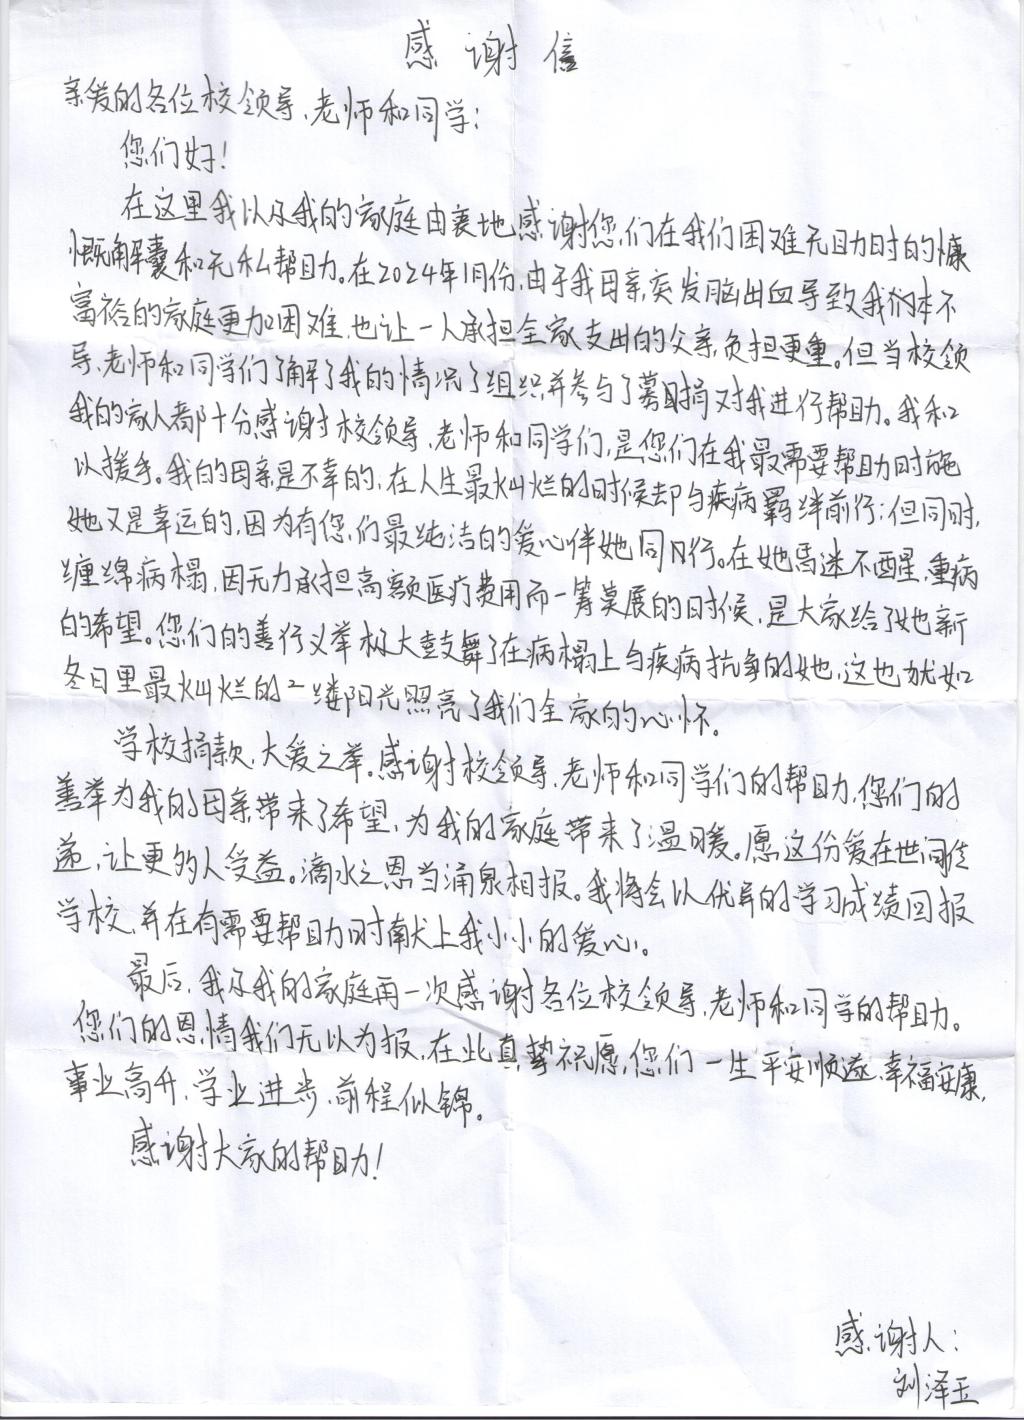 感谢信
亲爱的各位校领导、老师和同学：
您们好！
在这里我以及我的家庭由衷地感谢您们在我们困难无助时的慷
慨解囊和无私帮助。在2024年1月份，由于我母亲突发脑出血导致我们本不
富裕的家庭更加困难，也让一人承担全家支出的父亲负担更重。但当校领
导、老师和同学们了解了我的情况了组织并参与了募捐对我进行帮助。我和
我的家人都十分感谢校领导、老师和同学们，是您们在我最需要帮助时施
以援手。我的母亲是不幸的，在人生最灿烂的时候却与疾病羁绊前行；但同时，
她又是幸运的，因为有您们最纯洁的爱心伴她同行。在她昏迷不醒，重病
缠绵病榻，因无力承担高额医疗费用而一筹莫展的时候，是大家给了她新
的希望。您们的善行义举极大鼓舞了在病榻上与疾病抗争的她，这也就如
冬日里最灿烂的一缕阳光照亮了我们全家的心怀。
学校捐款，大爱之举。感谢校领导、老师和同学们的帮助，您们的
善举为我的母亲带来了希望，为我的家庭带来了温暖。愿这份爱在世间传
递，让更多人受益。滴水之恩当涌泉相报。我将会以优异的学习成绩回报
学校，并在有需要帮助时献上我小小的爱心。
最后，我及我的家庭再一次感谢各位校领导、老师和同学的帮助。
您们的恩情我们无以为报，在此真挚祝愿，您们一生平安顺遂、幸福安康，
事业高升，学业进步，前程似锦。
感谢大家的帮助！
感谢人：
刘泽玉